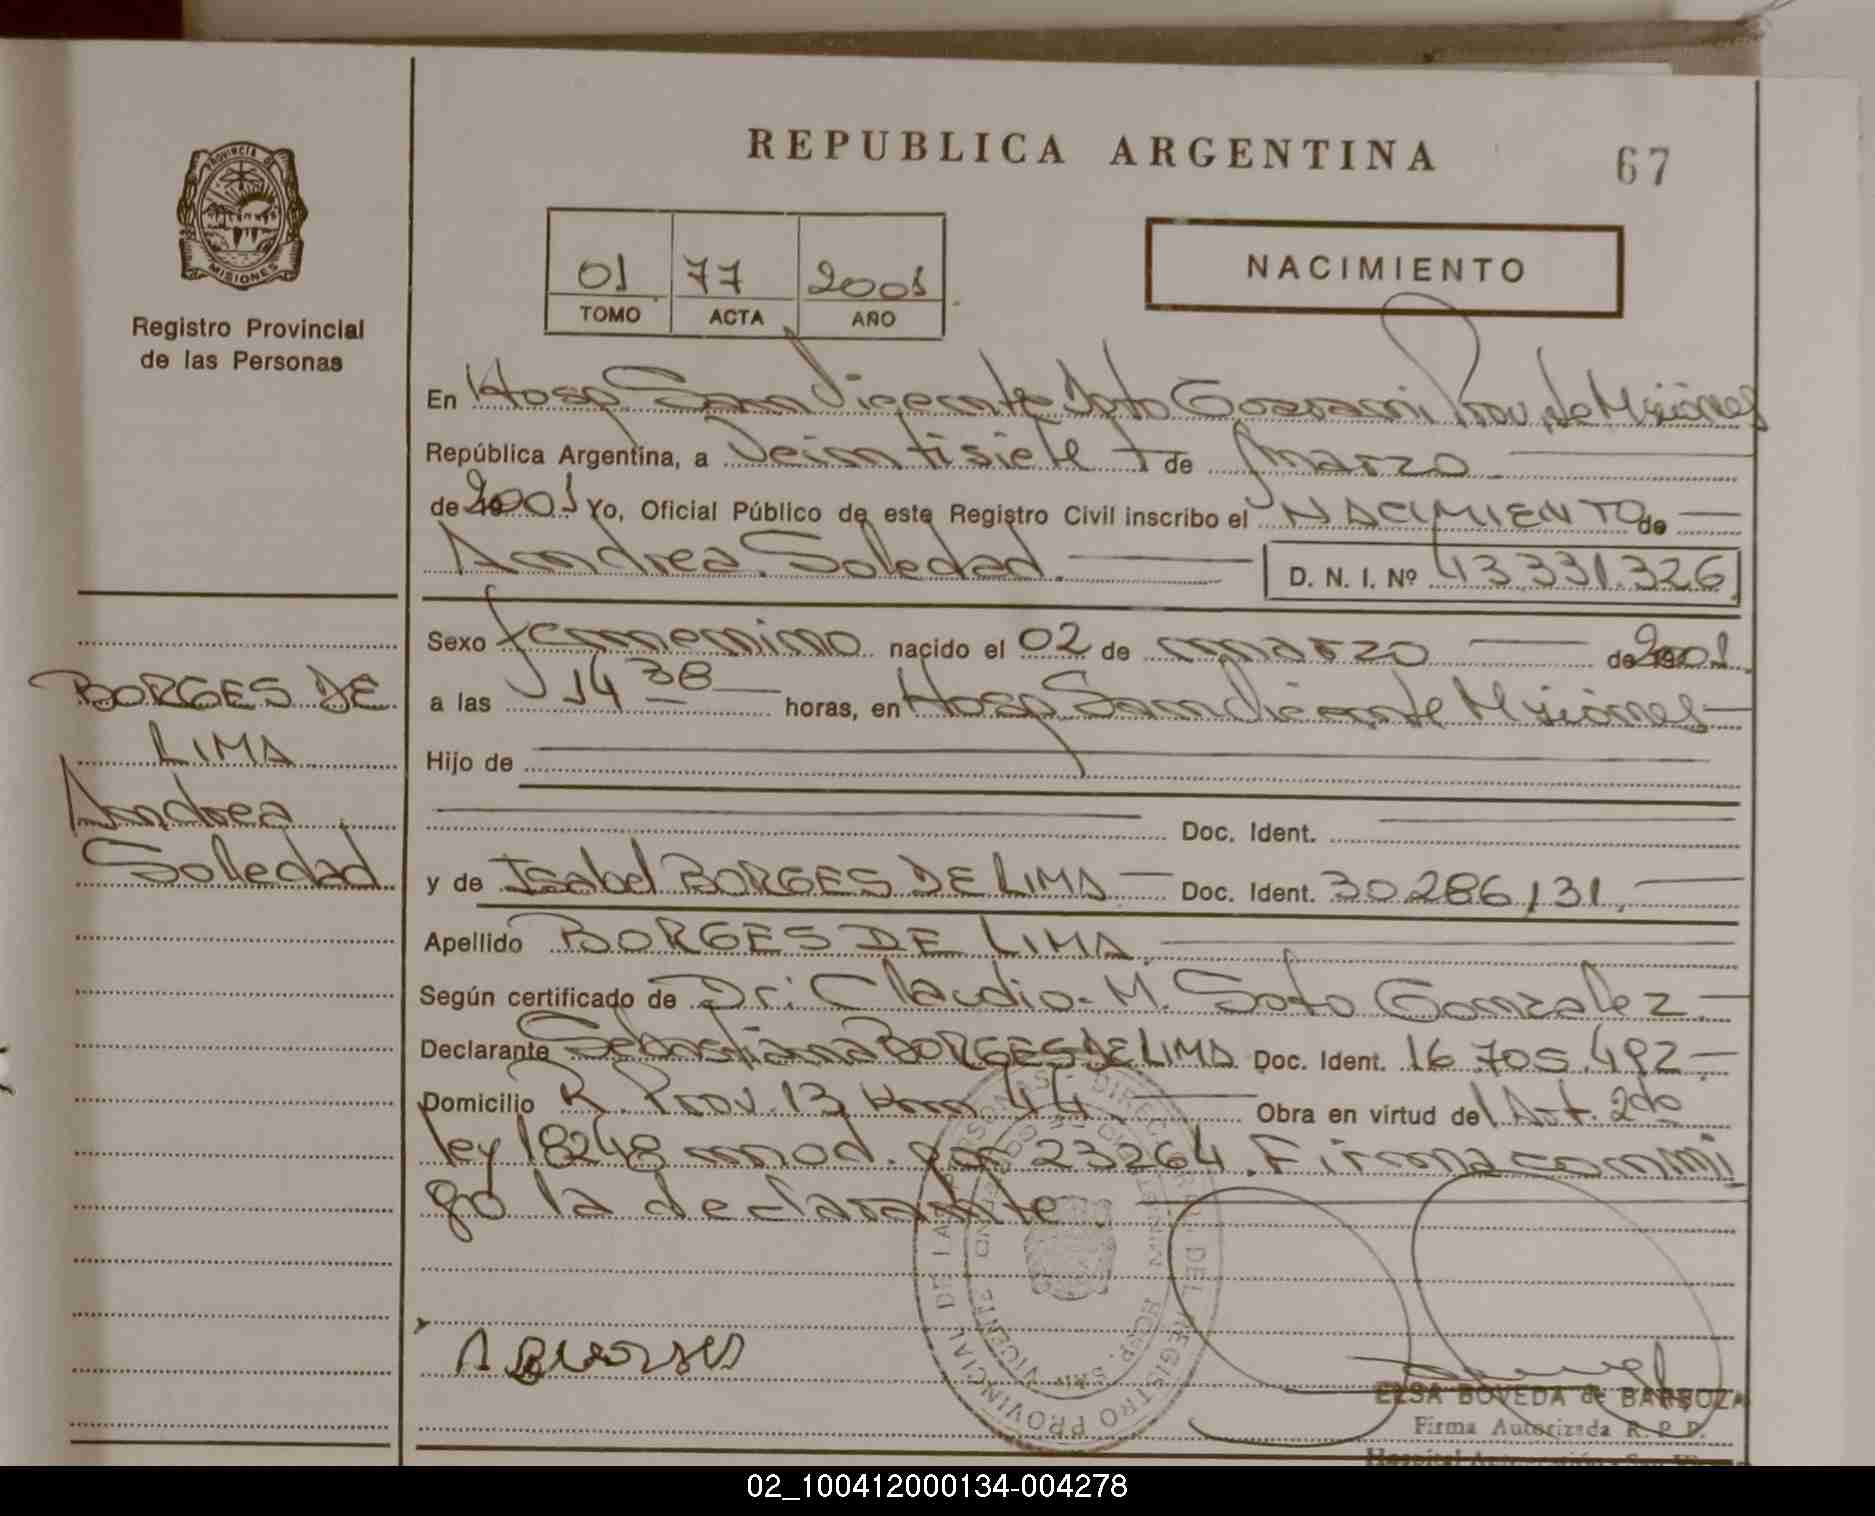 REPUBLICA ARGENTINA
67
PROVINCIA DE
MISIONES
Registro Provincial
de las Personas
01 77 2001
TOMO ACTA AÑO
NACIMIENTO
En Hosp. San Vicente Dpto Guarani, Prov. de Misiones
República Argentina, a Veintisiete de Marzo
de 2001 Yo, Oficial Público de este Registro Civil inscribo el NACIMIENTO de
Andrea Soledad. D. N. I. Nº 43.331.326
Sexo femenino nacido el 02 de marzo de 2001
a las 14 38 horas, en Hosp San Vicente Misiones
Hijo de
Doc. Ident.
y de Isabel BORGES DE LIMA Doc. Ident. 30.286.131.
Apellido BORGES DE LIMA.
Según certificado de Dr: Claudio M. Soto Gonzalez
Declarante Sebastiana BORGES DE LIMA Doc. Ident. 16.705.492
Domicilio R. Prov. 13 Km 44. Obra en virtud del Art. 2do
ley 18248 mod. por 23264. Firma conmi
go la declarante.
BORGES DE
LIMA
Andrea
Soledad
ELSA BOVEDA de BARBOZA
Firma Autorizada R. P. P.
02_100412000134-004278